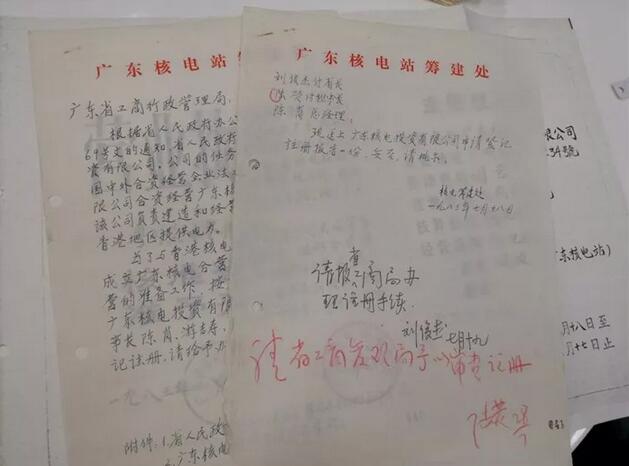 广东核电站筹
广东省工商行政管理局：
根据省人民政府办公
69号文的通知，省人民政府
资有限公司。公司的任务
国中外合资经营企业法
限公司合资经营广东核
该公司负责建造和经营
香港地区提供电力。
为了与香港核电
成交广东核电合营
营的准备工作，按
广东核电投资有限
事长陈肖，游吉寿，
记注册，请给予办
一九八三年
附件：1.省人民政
2.广东核电
广东核电站筹建处
刘俊杰付省长
陈肖总经理：
现送上广东核电投资有限公司申请登记
注册报告一份，妥否，请批示。
核电筹建处
一九八三年七月十八日
请报省工商局办
理注册手续。
刘俊杰 七月十九
请省工商管理局予以审查注册
限公司
34號
广东核电站）
月十八日至
月十七日止